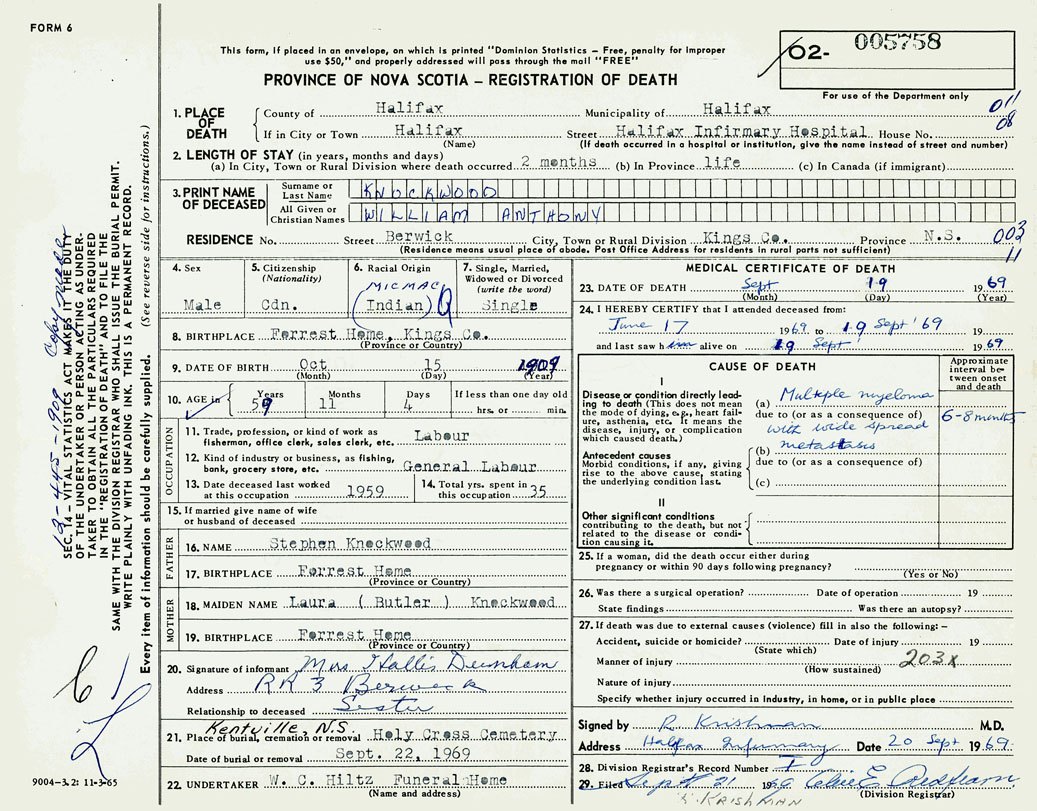 FORM 6
This form, if placed in an envelope, on which is printed "Dominion Statistics – Free, penalty for improper
use $50," and properly addressed will pass through the mail "FREE"
PROVINCE OF NOVA SCOTIA – REGISTRATION OF DEATH
O2- 005758
For use of the Department only
011
08
1. PLACE OF DEATH
County of Halifax Municipality of Halifax
If in City or Town Halifax Street Halifax Infirmary Hospital House No.
(Name) (If death occurred in a hospital or institution, give the name instead of street and number)
2. LENGTH OF STAY (in years, months and days)
(a) In City, Town or Rural Division where death occurred 2 months (b) In Province life (c) In Canada (if immigrant)
3. PRINT NAME OF DECEASED
Surname or Last Name KNOCKWOOD
All Given or Christian Names WILLIAM ANTHONY
RESIDENCE No. Street Berwick City, Town or Rural Division Kings Co. Province N.S. 003
11
(Residence means usual place of abode. Post Office Address for residents in rural parts not sufficient)
4. Sex
Male
5. Citizenship
(Nationality)
Cdn.
6. Racial Origin
MICMAC
(Indian)
7. Single, Married,
Widowed or Divorced
(write the word)
Single
8. BIRTHPLACE Forrest Home, Kings Co.
(Province or Country)
9. DATE OF BIRTH Oct 15 1909
(Month) (Day) (Year)
10. AGE in
Years 59
Months 11
Days 4
If less than one day old
hrs. or min.
OCCUPATION
11. Trade, profession, or kind of work as
fisherman, office clerk, sales clerk, etc. Labour
12. Kind of industry or business, as fishing,
bank, grocery store, etc. General Labour
13. Date deceased last worked
at this occupation 1959
14. Total yrs. spent in
this occupation 35
15. If married give name of wife
or husband of deceased
FATHER
16. NAME Stephen Knockwood
17. BIRTHPLACE Forrest Home
(Province or Country)
MOTHER
18. MAIDEN NAME Laura ( Butler ) Knockwood
19. BIRTHPLACE Forrest Home
(Province or Country)
20. Signature of informant Mrs Hallis Durnham
Address RR 3 Berwick
Relationship to deceased Sister
Kentville, N.S.
21. Place of burial, cremation or removal Holy Cross Cemetery
Date of burial or removal Sept. 22, 1969
22 UNDERTAKER W. C. Hiltz Funeral Home
(Name and address)
MEDICAL CERTIFICATE OF DEATH
23. DATE OF DEATH Sept 19 1969
(Month) (Day) (Year)
24. I HEREBY CERTIFY that I attended deceased from:
June 17 1969 to 19 Sept '69 19
and last saw him alive on 19 Sept 1969
CAUSE OF DEATH
Approximate interval between onset and death
I
Disease or condition directly leading to death (This does not mean the mode of dying, e.g., heart failure, asthenia, etc. It means the disease, injury, or complication which caused death.)
(a) Multiple myeloma
due to (or as a consequence of) 6-8 months
with wide spread
Antecedent causes
Morbid conditions, if any, giving rise to the above cause, stating the underlying condition last.
(b) metastasis
due to (or as a consequence of)
(c)
II
Other significant conditions
contributing to the death, but not related to the disease or condition causing it.
25. If a woman, did the death occur either during
pregnancy or within 90 days following pregnancy?
(Yes or No)
26. Was there a surgical operation? Date of operation 19
State findings Was there an autopsy?
27. If death was due to external causes (violence) fill in also the following: –
Accident, suicide or homicide? Date of injury 19
(State which)
Manner of injury 203X
(How sustained)
Nature of injury
Specify whether injury occurred in industry, in home, or in public place
Signed by R Krishnan M.D.
Address Halifax Infirmary Date 20 Sept 1969.
28. Division Registrar's Record Number
29. Filed Sept 21 1969
(Division Registrar)
KRISHNAN
SEC. 14 – VITAL STATISTICS ACT MAKES IT THE DUTY
OF THE UNDERTAKER OR PERSON ACTING AS UNDERTAKER
TO OBTAIN ALL THE PARTICULARS REQUIRED
IN THE "REGISTRATION OF DEATH" AND TO FILE THE
SAME WITH THE DIVISION REGISTRAR WHO SHALL ISSUE THE BURIAL PERMIT.
WRITE PLAINLY WITH UNFADING INK. THIS IS A PERMANENT RECORD.
Every item of information should be carefully supplied. (See reverse side for instructions.)
9004-3.2: 11-3-65